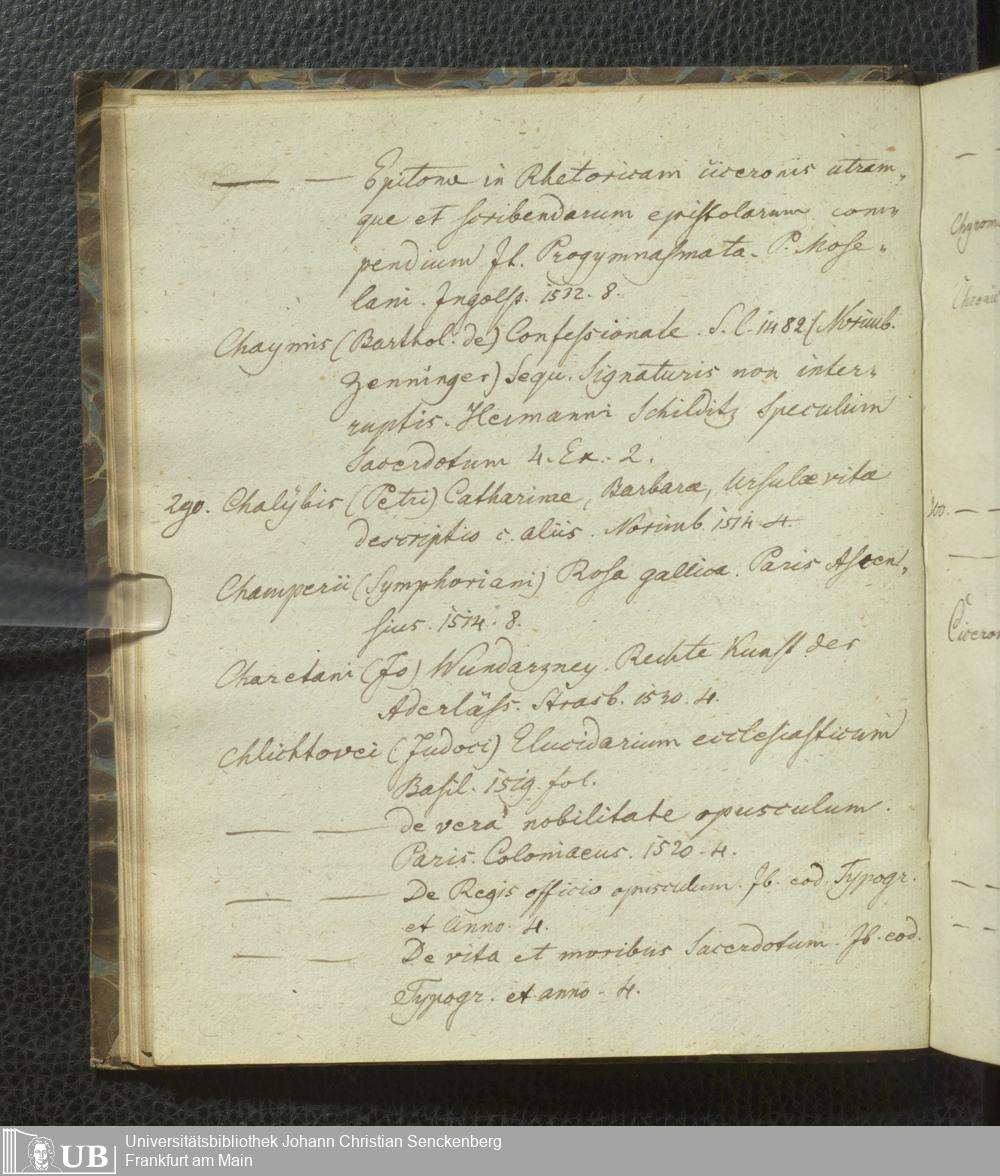 — — Epitome in Rhetoricam Ciceronis utram„
que et scribendarum epistolarum com„
pendium It. Progymnasmata. P. Mose„
lani. Ingolst. 1532. 8.
Chaymis (Barthol. de) Confessionale. S. l. 1482 (Norimb.
Zenninger) Sequ. Signaturis non inter„
ruptis. Hermanni Schilditz Speculum
Sacerdotum 4. Ex. 2.
290. Chalÿbis (Petri) Catharinae, Barbarae, Ursulae vita
descriptio c. aliis. Norimb. 1514. 4.
Champerii (Symphoriani) Rosa gallica. Paris Ascen„
sius. 1514. 8.
Charetani (Jo) Wundarzney. Rechte Kunst der
Aderläss. Strasb. 1530. 4.
Chlichtovei (Judoci) Elucidarium ecclesiasticum
Basil. 1519. fol.
— — de vera nobilitate opusculum.
Paris. Colonaeus. 1520. 4.
— — De Regis officio opusculum. Ib. eod. Typogr.
et Anno. 4.
— — De vita et moribus Sacerdotum. Ib. eod.
Typogr. et anno. 4.
300. —
UB Universitätsbibliothek Johann Christian Senckenberg
Frankfurt am Main